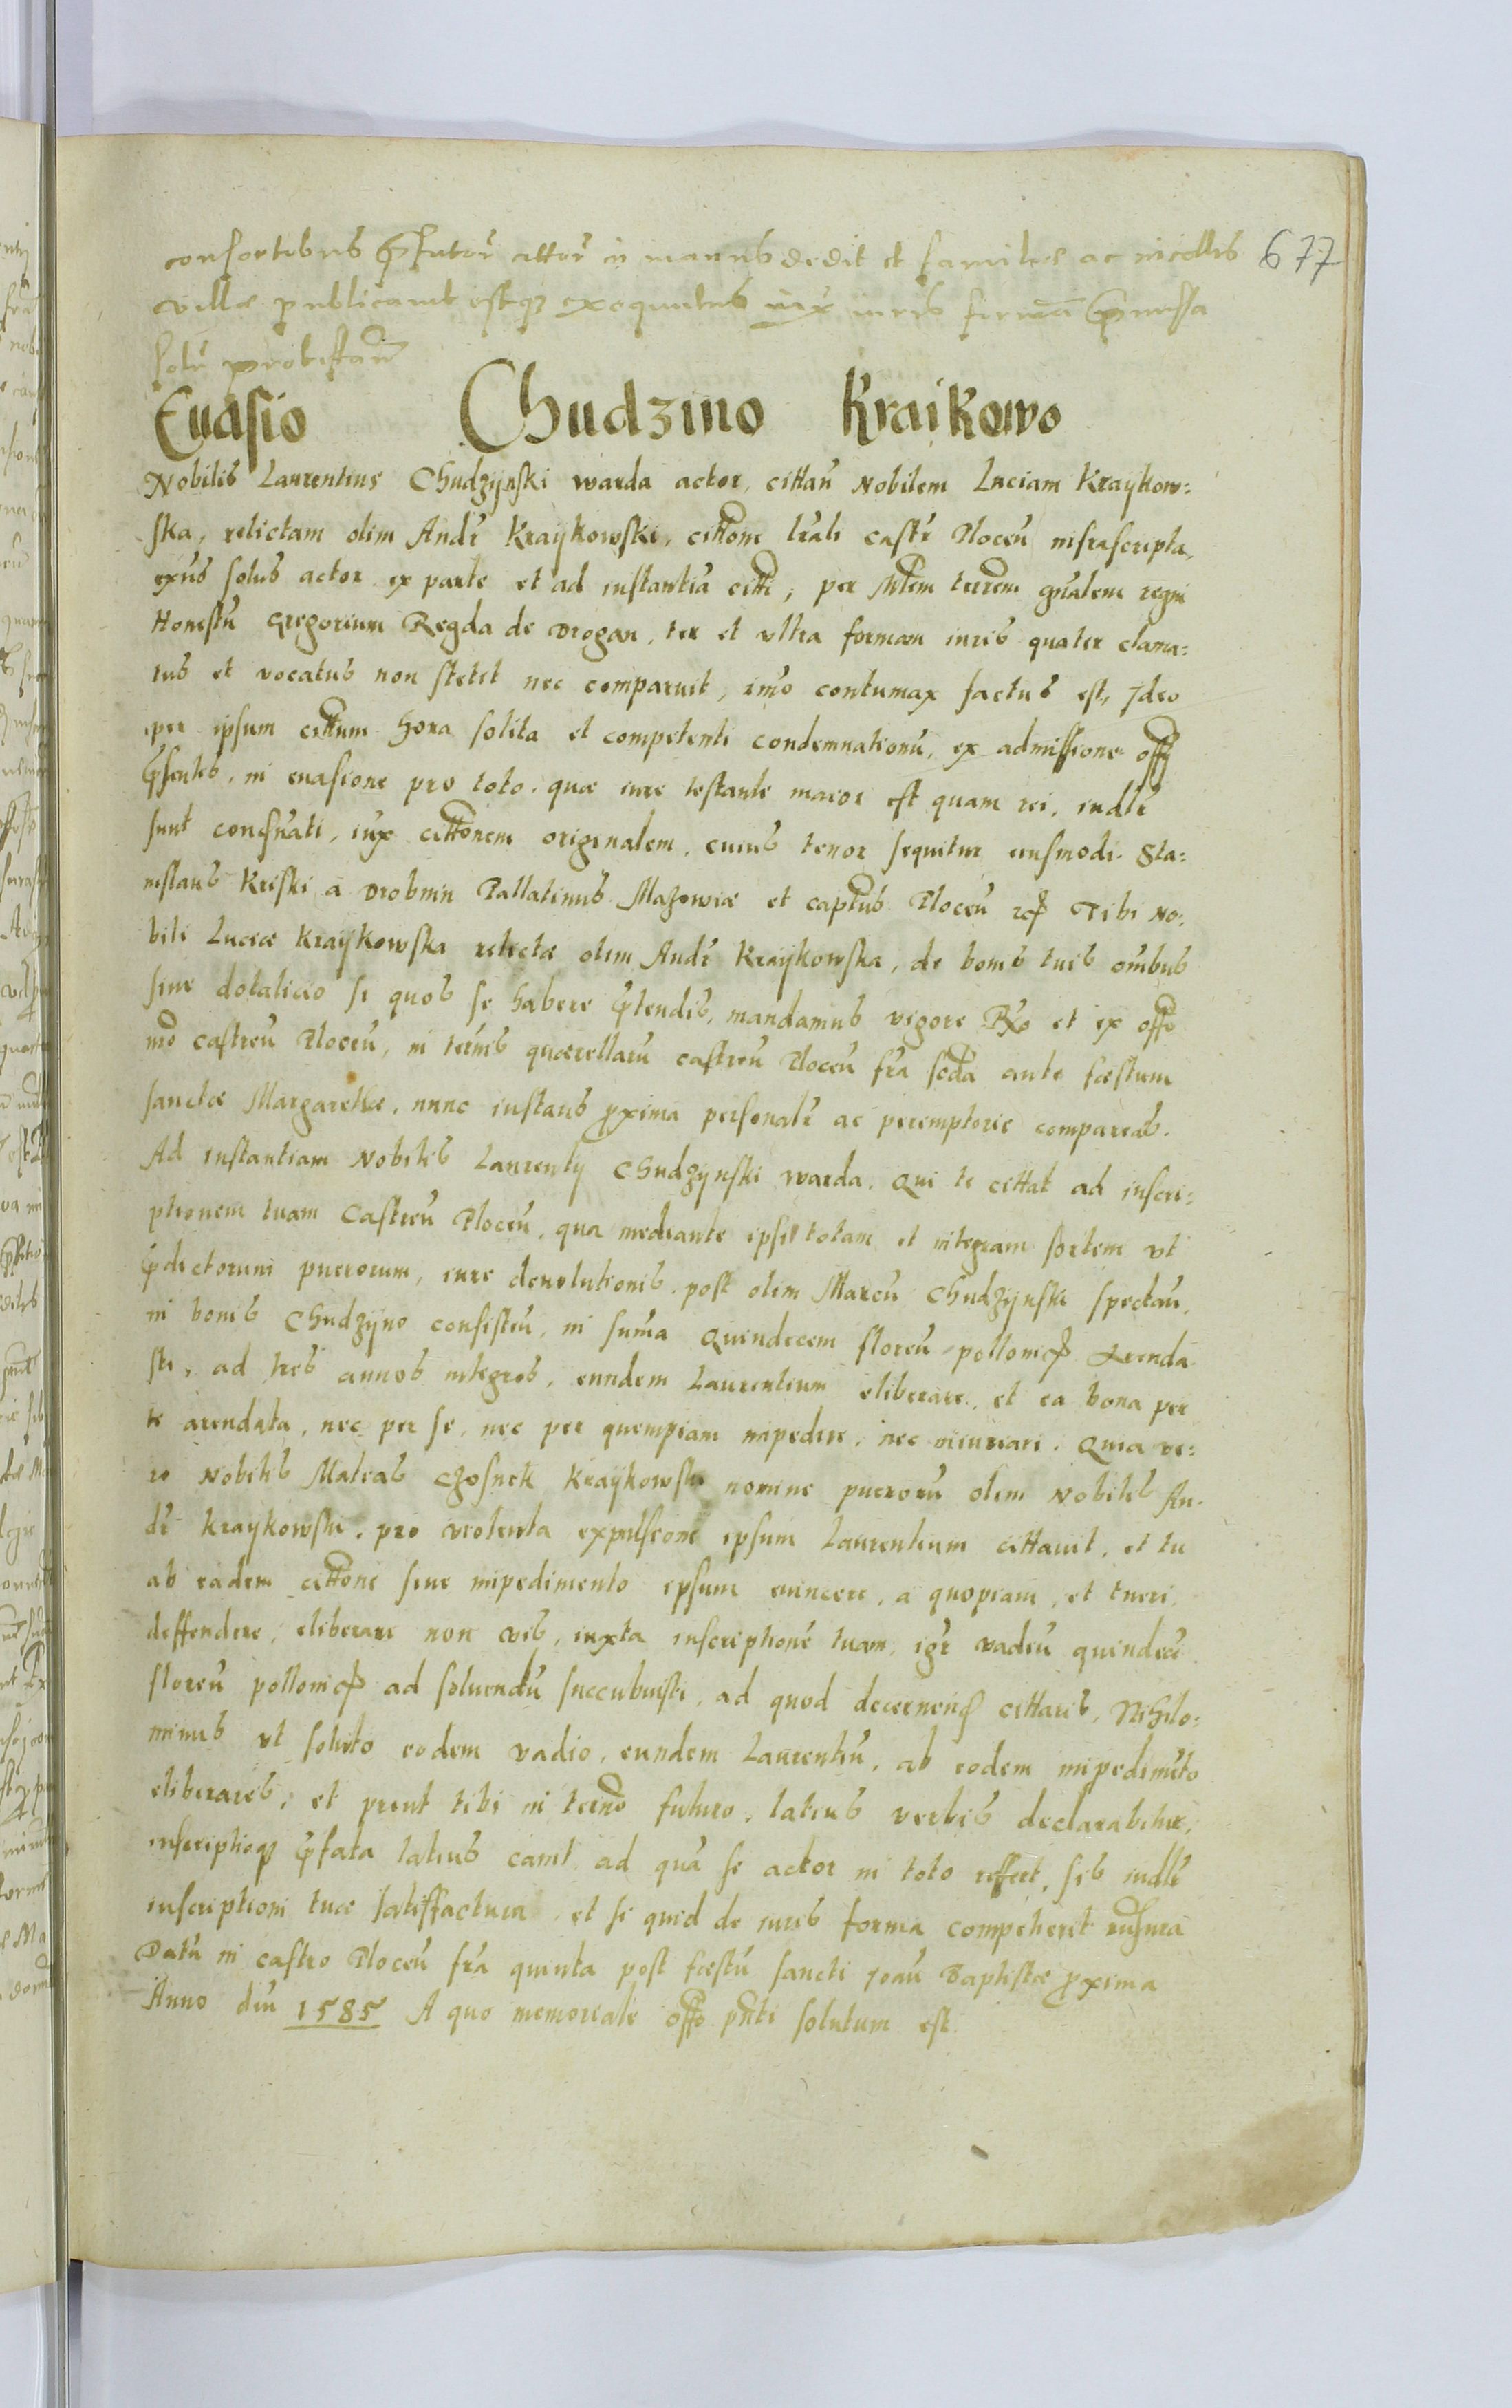 consortibus ꝑfator actor in manus dedit et familiæ ac incolis 677
villæ publicavit estqʒ exequutus iux iuris formā ꝑmissa
solū
Evasio Chudzino Kraikowo
Nobilis Laurentius Chudzÿnski warda actor, cittań Nobilem Luciam Kraÿkow:
ska, relictam olim Andr Kraÿkowski, cittōne lrali castr Plocen̄ infrascripta,
exn̄s solus actor ex parte et ad instantiā citte, per Mtem terrem gn̄alem regni
Honestū Gregorium Regda de Drogan, ter et ultra formam iuris quater clama:
tus et vocatus non stetit nec comparuit, imo contumax factus est, Ideo
per ipsum cittum hora solita et competenti condemnationū, ex admissione offÿ
ꝑsentis, in evasione pro toto, quæ iure testante maior est quam rei, indlr
sunt consuati, iux cittonem originalem, cuius tenor sequitur eiusmodi. Sta:
nislaus Kriski a Drobnin Pallatinus Mazowiæ et captus Plocen̄ Tibi No:
bili Luciæ Kraÿkowska relictæ olim Andr Kraÿkowska, de bonis tuis om̄ibus
sive dotalicio si quos se habere ꝑtendis, mandamus vigore Rx̄o et ex offo
nro castren̄ Plocen̄, in termīs quærellarū castren̄ Plocen̄ fra scda ante fæstum
sanctæ Margarethæ, nunc instans ꝓxima personalr ac peremptorie compareas.
Ad instantiam Nobilis Laurentÿ Chudzÿnski warda. Qui te cittat ad inscri:
ptionem tuam Castren̄ Plocen̄, qua mediante ipsi totam et integram sortem ut
ꝑdictorum puerorum, iure devolutionis, post olim Marcū Chudzÿnski spectan̄,
in bonis Chudzÿno consisten̄, in sum̄a Quindecem floren̄ pollonic Arenda
sti, ad tres annos integros, eundem Laurentium eliberare, et ea bona per
te arendata, nec per se, nec per quempiam impedire, nec iniuriari. Quia ve:
ro Nobilis Matias Czosnek Kraÿkowski nomine puerorū olim Nobilis An:
dr Kraykowski, pro violenta expulsione ipsum Laurentium cittavit, et tu
ab eadem cittone sine impedimento ipsum evincere, a quopiam, et tueri,
deffendere, eliberare non vis, iuxta inscriptione tuam, igr vadiū quindecē
floren̄ pollonic ad solvendū succubuisti, ad quod decernen cittaris, Nihilo:
minus ut soluto eodem vadio, eundem Laurentiū, ab eodem impedimēto
eliberares, et prout tibi in termo futuro, latius verbis declarabitur,
inscriptioqʒ ꝑfata latius canit ad quā se actor in toto reffert, sis indlr
inscriptioni tuæ satisffactura et si quid de iuris forma competierit rn̄sura
Datū in castro Plocen̄ fra quinta post fæstū sancti Joan̄ Baptistæ ꝓxima
Anno dn̄i 1585 A quo memoriale offo pn̄ti solutum est